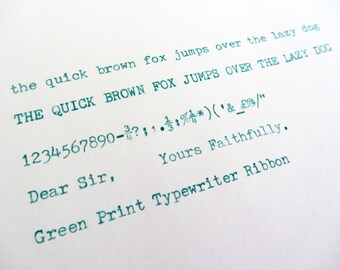 the quick brown fox jumps over the lazy dog
THE QUICK BROWN FOX JUMPS OVER THE LAZY DOG
1234567890-¾?;:.⅓;%¼*)('&_£@/"
Dear Sir, Yours Faithfully.
Green Print Typewriter Ribbon